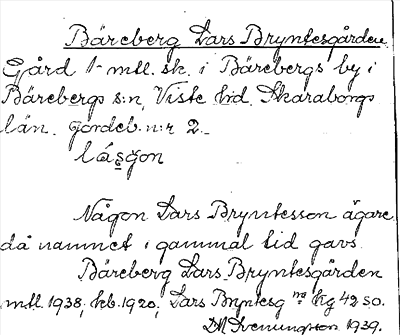 Bäreberg Lars Bryntesgården
Gård 1 mtl. sk. i Bärebergs by i
Bärebergs s:n, Viste hd, Skaraborgs
län. Jordeb. n:r 2.
Någon Lars Bryntesson ägare
då namnet i gammal tid gavs.
Bäreberg Lars Bryntesgården
mtl. 1938, kb. 1920, Lars Bryntesg Hg 4250.
1939.